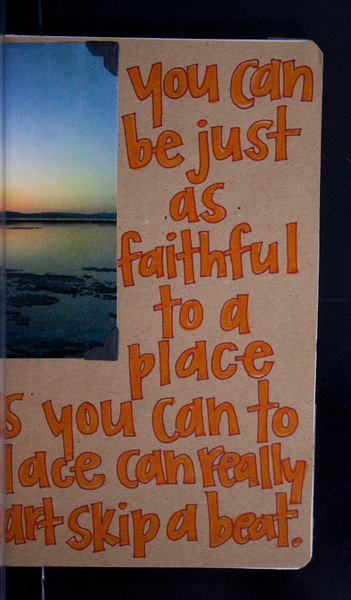 you can
be just
as
faithful
to a
place
s you can to
lace can really
art skip a beat.